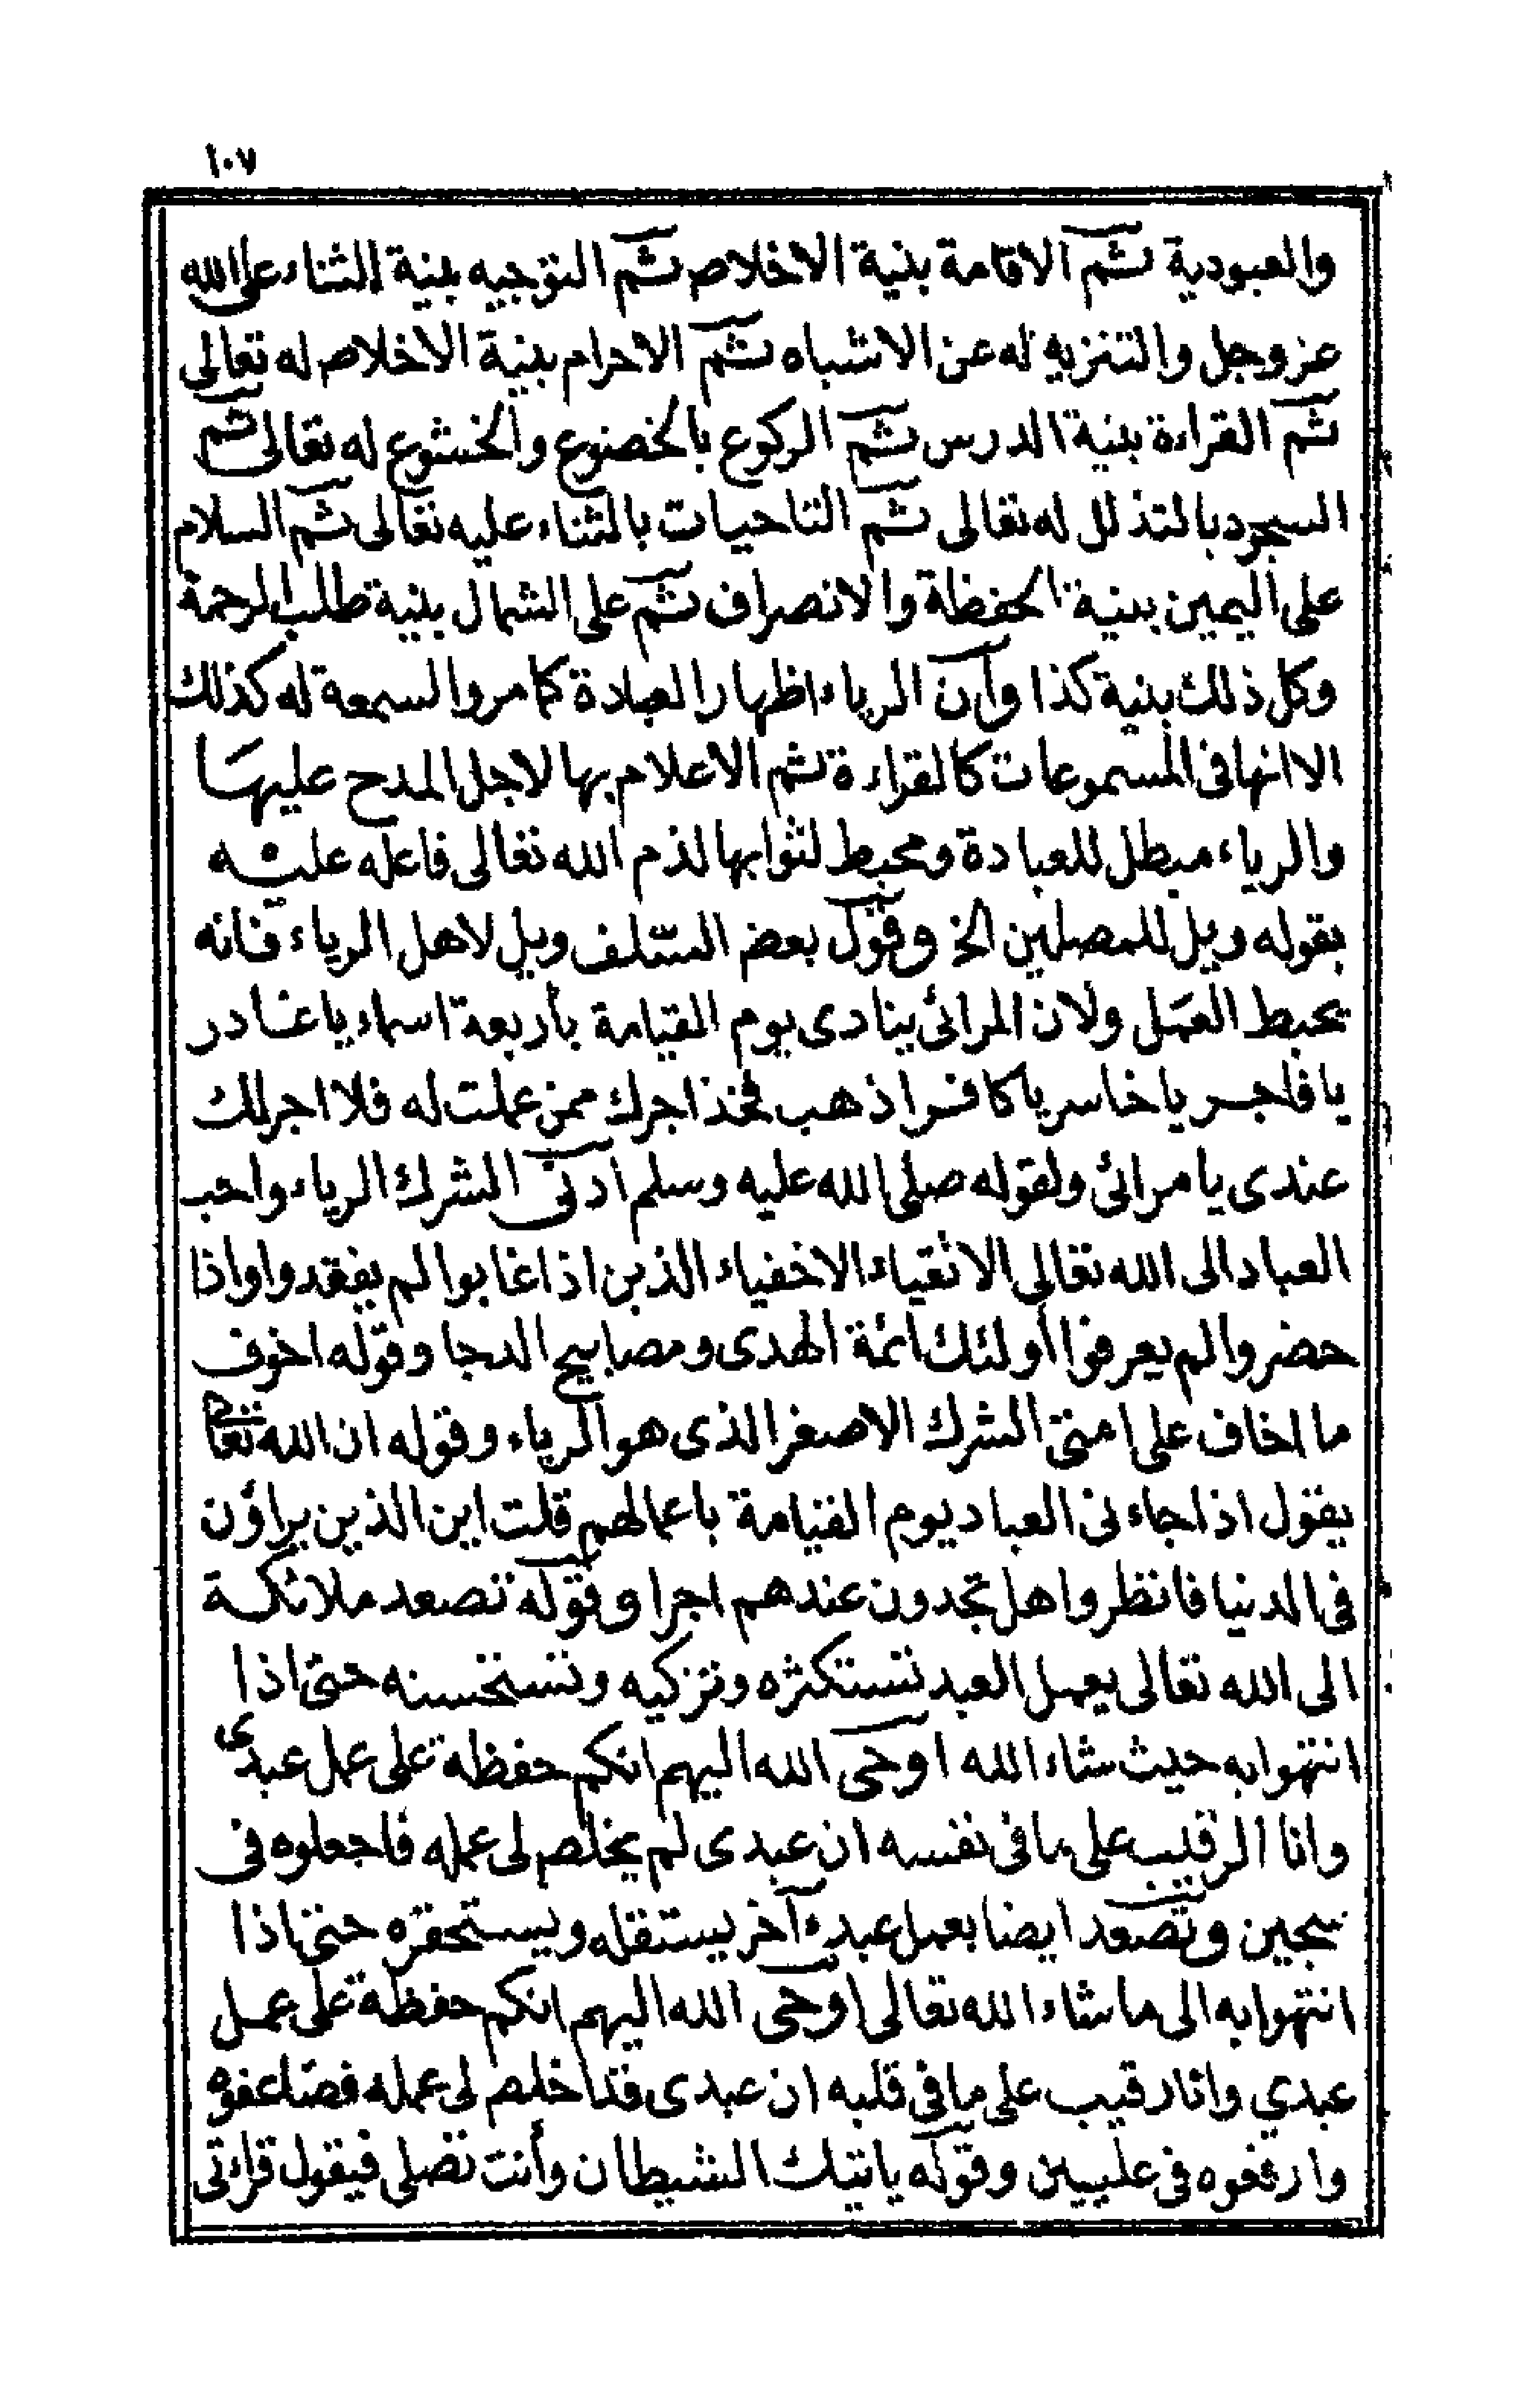 ١٠٧
والعبودية ثم الاقامة بنية الاخلاص ثم التوجيه بنية الثناء على الله
عز وجل والتنزيه له عن الاشباه ثم الاحرام بنية الاخلاص له تعالى
ثم القراءة بنية الدرس ثم الركوع بالخضوع والخشوع له تعالى ثم
السجود بالتذلل له تعالى ثم التاحيات بالثناء عليه تعالى ثم السلام
على اليمين بنية الحفظة والانصراف ثم على الشمال بنية طلب الرحمة
وكل ذلك بنية كذا وأن الرياء اظهار العبادة كما مر والسمعة له كذلك
الا انها فى المسموعات كالقراءة ثم الاعلام بها لاجل المدح عليها
والرياء مبطل للعبادة ومحبط لثوابها لذم الله تعالى فاعله عليه
بقوله ويل للمصلين الخ وقول بعض السلف ويل لاهل الرياء فانه
يحبط العمل ولان المرائى ينادى يوم القيامة بأربعة اسماء يا غادر
يا فاجر يا خاسر يا كافر اذهب فخذ اجرك ممن عملت له فلا اجر لك
عندى يا مرائى ولقوله صلى الله عليه وسلم ادنى الشرك الرياء واحب
العباد الى الله تعالى الاتقياء الاخفياء الذين اذا غابوا لم يفقدوا واذا
حضروا لم يعرفوا أولئك ائمة الهدى ومصابيح الدجا وقوله اخوف
ما اخاف على امتى الشرك الاصغر الذى هو الرياء وقوله ان الله تعالى
يقول اذا جاءنى العباد يوم القيامة باعمالهم قلت اين الذين يراؤن
فى الدنيا فانظروا هل تجدون عندهم اجرا وقوله تصعد ملائكة
الى الله تعالى بعمل العبد تستكثره وتزكيه وتستحسنه حتى اذا
انتهوا به حيث شاء الله اوحى الله اليهم انكم حفظة على عمل عبدى
وانا الرقيب على ما فى نفسه ان عبدى لم يخلص لى عمله فاجعلوه فى
سجين وتصعد ايضا بعمل عبد آخر يستقله ويستحقره حتى اذا
انتهوا به الى ما شاء الله تعالى اوحى الله اليهم انكم حفظة على عمل
عبدي وانا رقيب على ما فى قلبه ان عبدى قد اخلص لى عمله فضاعفوه
وارفعوه فى عليين وقوله ياتيك الشيطان وأنت تصلى فيقول قراءتى